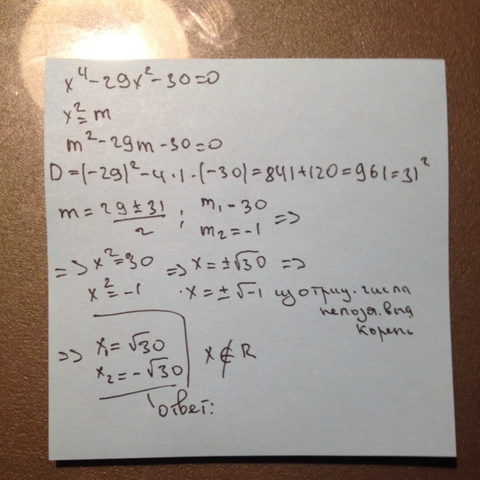 x⁴-29x²-30=0
x²=m
m²-29m-30=0
D=(-29)²-4·1·(-30)=841+120=961=31²
m=29±31/2; m₁-30
m₂=-1 =>
=> x²=30 => x=±√30 =>
x²=-1 ·x=±√-1 из отриц. числа
корень
=> x₁=√30
x₂=-√30 x∉R
ответ: